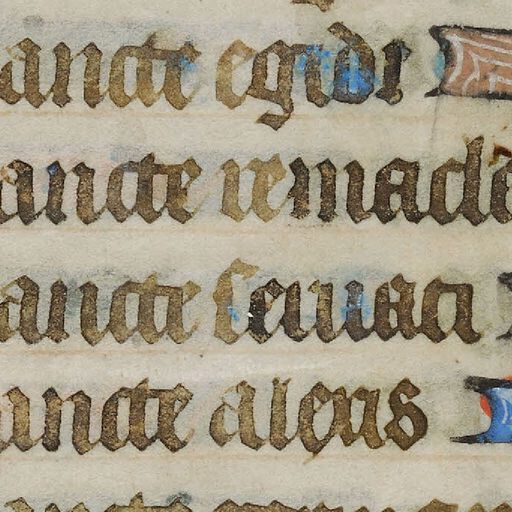 ancte egidi
ancte remacle
ancte seruaci
ancte aleus